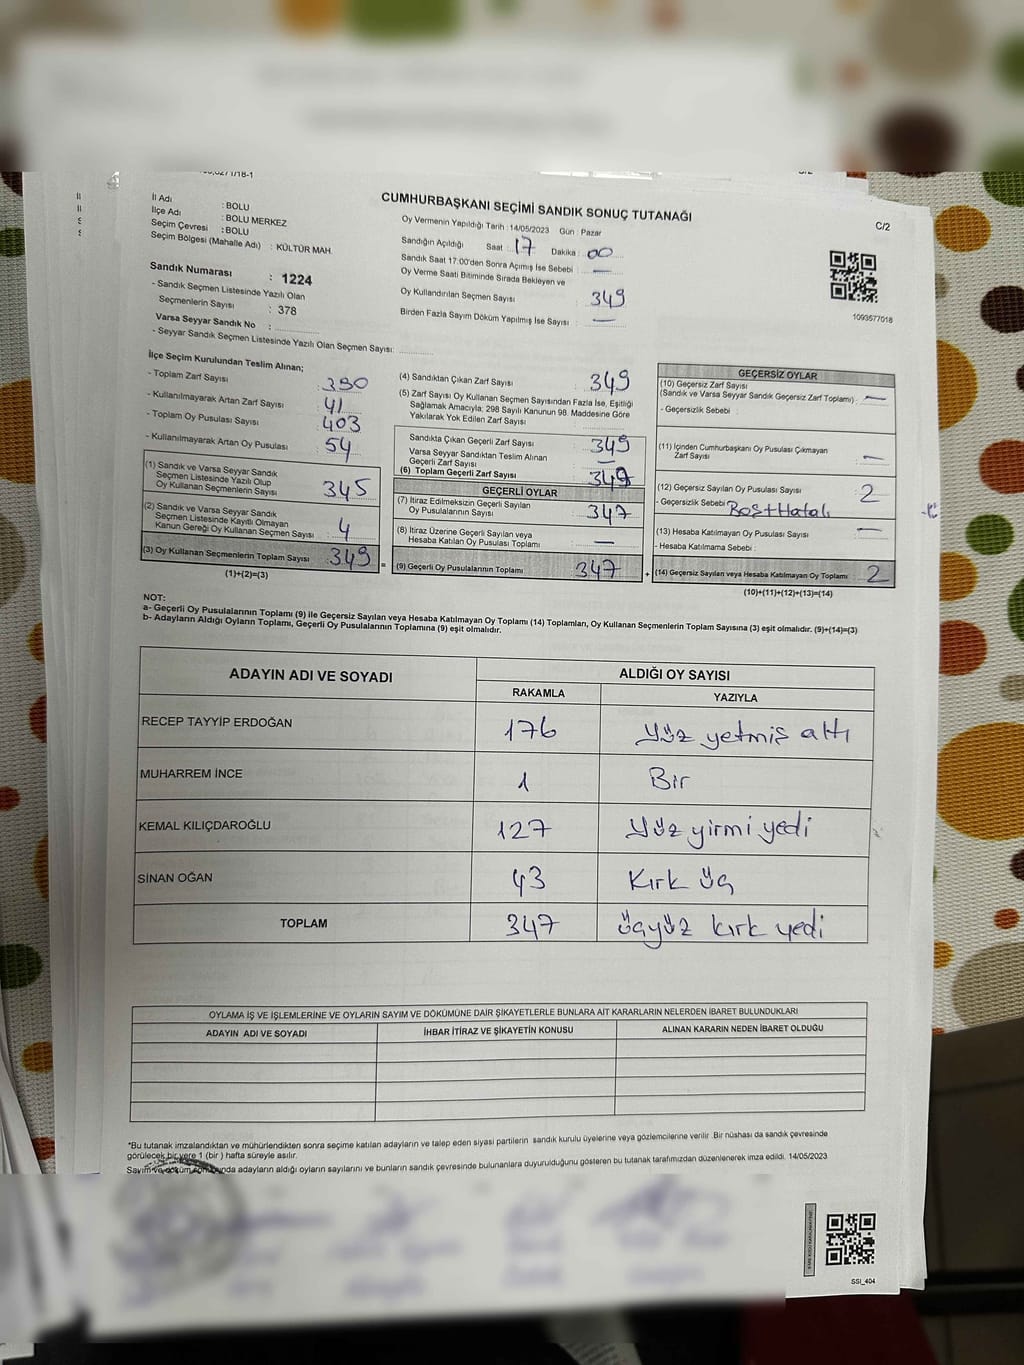 CUMHURBAŞKANI SEÇİMİ SANDIK SONUÇ TUTANAĞI
C/2
İl Adı : BOLU
İlçe Adı : BOLU MERKEZ
Seçim Çevresi : BOLU
Seçim Bölgesi (Mahalle Adı) : KÜLTÜR MAH.
Sandık Numarası : 1224
- Sandık Seçmen Listesinde Yazılı Olan
Seçmenlerin Sayısı : 378
Varsa Seyyar Sandık No :
- Seyyar Sandık Seçmen Listesinde Yazılı Olan Seçmen Sayısı:
Oy Vermenin Yapıldığı Tarih :14/05/2023 Gün : Pazar
Sandığın Açıldığı Saat : 17 Dakika : 00
Sandık Saat 17:00'den Sonra Açımış İse Sebebi : —
Oy Verme Saati Bitiminde Sırada Bekleyen ve
Oy Kullandırılan Seçmen Sayısı : 349
Birden Fazla Sayım Döküm Yapılmış İse Sayısı : —
1093577018
İlçe Seçim Kurulundan Teslim Alınan;
- Toplam Zarf Sayısı : 390
- Kullanılmayarak Artan Zarf Sayısı : 41
- Toplam Oy Pusulası Sayısı : 403
- Kullanılmayarak Artan Oy Pusulası : 54
(1) Sandık ve Varsa Seyyar Sandık
Seçmen Listesinde Yazılı Olup
Oy Kullanan Seçmenlerin Sayısı 345
(2) Sandık ve Varsa Seyyar Sandık
Seçmen Listesinde Kayıtlı Olmayan
Kanun Gereği Oy Kullanan Seçmen Sayısı 4
(3) Oy Kullanan Seçmenlerin Toplam Sayısı 349
(1)+(2)=(3)
=
(4) Sandıktan Çıkan Zarf Sayısı : 349
(5) Zarf Sayısı Oy Kullanan Seçmen Sayısından Fazla İse, Eşitliği
Sağlamak Amacıyla; 298 Sayılı Kanunun 98. Maddesine Göre
Yakılarak Yok Edilen Zarf Sayısı :
Sandıkta Çıkan Geçerli Zarf Sayısı : 349
Varsa Seyyar Sandıktan Teslim Alınan
Geçerli Zarf Sayısı : —
(6) Toplam Geçerli Zarf Sayısı : 349
GEÇERLİ OYLAR
(7) İtiraz Edilmeksizin Geçerli Sayılan
Oy Pusulalarının Sayısı : 347
(8) İtiraz Üzerine Geçerli Sayılan veya
Hesaba Katılan Oy Pusulası Toplamı : —
(9) Geçerli Oy Pusulalarının Toplamı 347
+
GEÇERSİZ OYLAR
(10) Geçersiz Zarf Sayısı
(Sandık ve Varsa Seyyar Sandık Geçersiz Zarf Toplamı) : —
- Geçersizlik Sebebi :
(11) İçinden Cumhurbaşkanı Oy Pusulası Çıkmayan
Zarf Sayısı —
(12) Geçersiz Sayılan Oy Pusulası Sayısı : 2
- Geçersizlik Sebebi Boş+Hatalı
(13) Hesaba Katılmayan Oy Pusulası Sayısı : —
- Hesaba Katılmama Sebebi :
(14) Geçersiz Sayılan veya Hesaba Katılmayan Oy Toplamı 2
(10)+(11)+(12)+(13)=(14)
NOT:
a- Geçerli Oy Pusulalarının Toplamı (9) ile Geçersiz Sayılan veya Hesaba Katılmayan Oy Toplamı (14) Toplamları, Oy Kullanan Seçmenlerin Toplam Sayısına (3) eşit olmalıdır. (9)+(14)=(3)
b- Adayların Aldığı Oyların Toplamı, Geçerli Oy Pusulalarının Toplamına (9) eşit olmalıdır.
ADAYIN ADI VE SOYADI ALDIĞI OY SAYISI
RAKAMLA YAZIYLA
RECEP TAYYİP ERDOĞAN 176 Yüz yetmiş altı
MUHARREM İNCE 1 Bir
KEMAL KILIÇDAROĞLU 127 Yüz yirmi yedi
SİNAN OĞAN 43 Kırk üç
TOPLAM 347 üçyüz kırk yedi
OYLAMA İŞ VE İŞLEMLERİNE VE OYLARIN SAYIM VE DÖKÜMÜNE DAİR ŞİKAYETLERLE BUNLARA AİT KARARLARIN NELERDEN İBARET BULUNDUKLARI
ADAYIN ADI VE SOYADI İHBAR İTİRAZ VE ŞİKAYETİN KONUSU ALINAN KARARIN NEDEN İBARET OLDUĞU
*Bu tutanak imzalandıktan ve mühürlendikten sonra seçime katılan adayların ve talep eden siyasi partilerin sandık kurulu üyelerine veya gözlemcilerine verilir .Bir nüshası da sandık çevresinde
görülecek bir yere 1 (bir ) hafta süreyle asılır.
Sayım ve döküm sonunda adayların aldığı oyların sayılarını ve bunların sandık çevresinde bulunanlara duyurulduğunu gösteren bu tutanak tarafımızdan düzenlenerek imza edildi. 14/05/2023
SSI_404